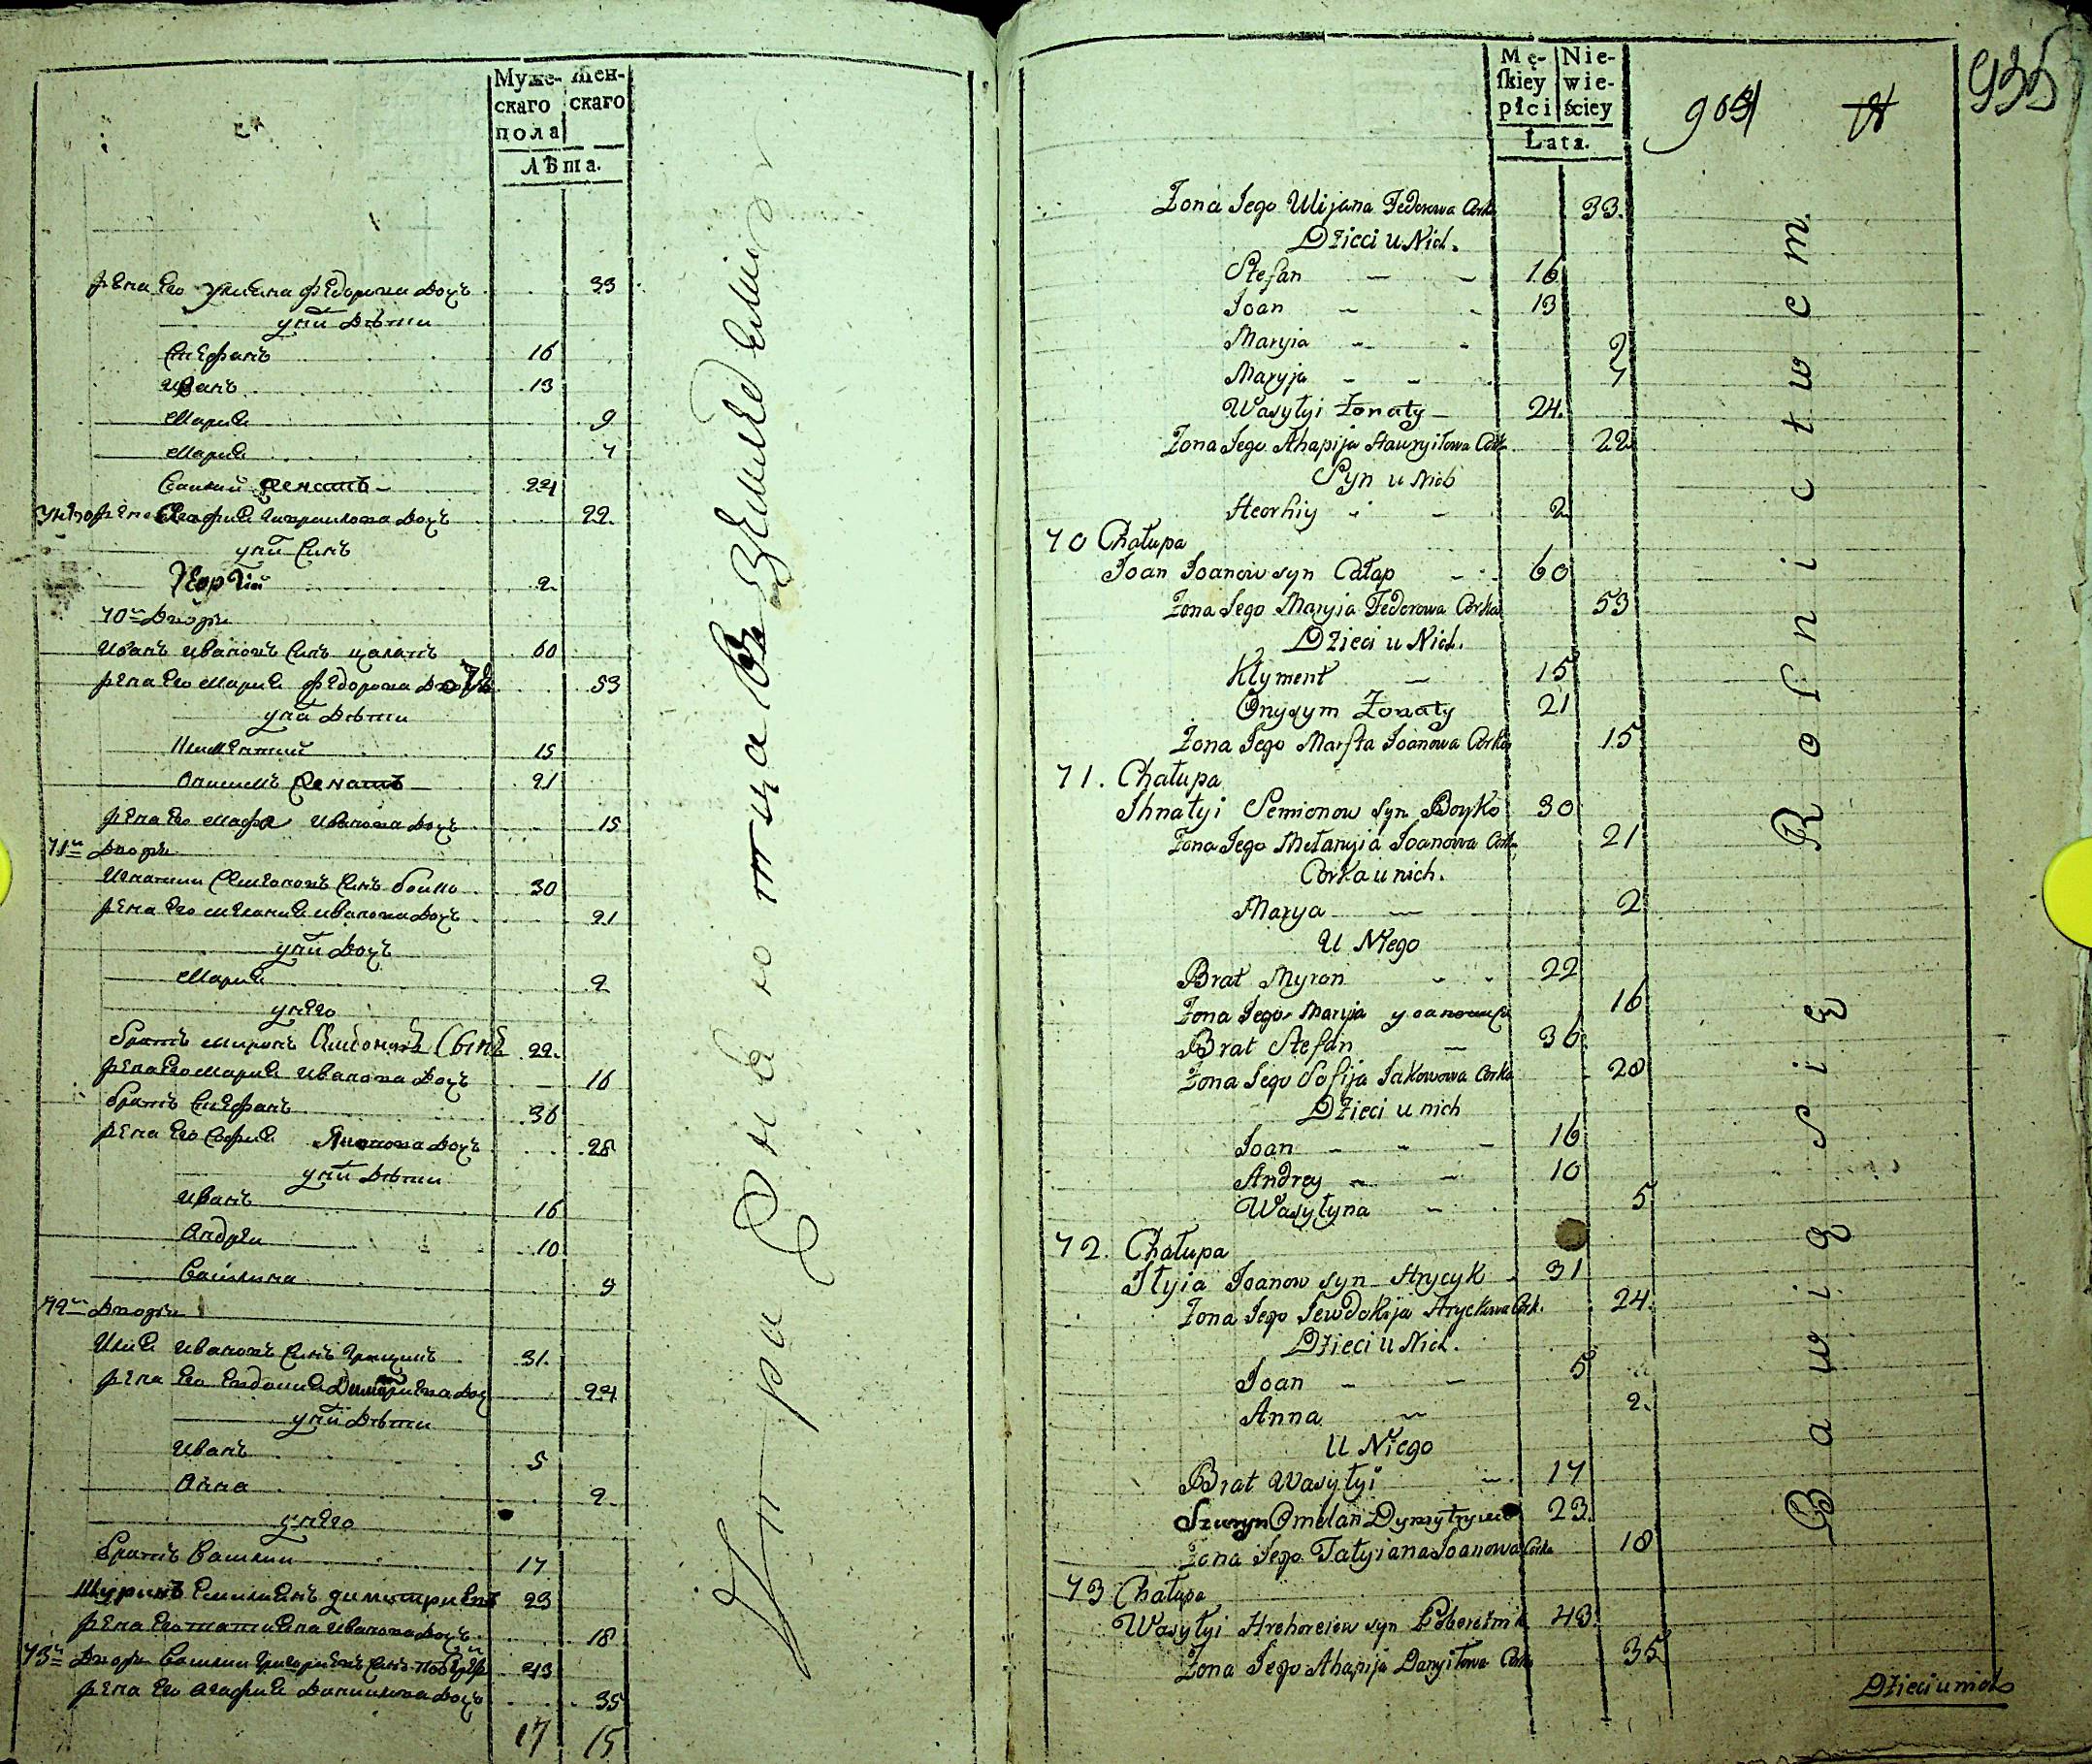 Муже-
скаго
пола
Жен-
скаго
Лѣта.
жена его Улияна Федорова дочь 33
у них дѣти
Стефанъ 16
Иванъ 13
Мария 9
Мария 7
Василий женатъ 24
жена Агафия Гаврилова дочь 22
у них синъ
Георгий 2
70 Дворъ
Иванъ Ивановъ синъ Цалапъ 60
жена его Мария Федорова дочь 53
у них дѣти
Климентий 15
Онисимъ женатъ 21
жена его Марфа Иванова дочь 15
71 Дворъ
Игнатий Семионовъ синъ Бойко 30
жена его Мелания Иванова дочь 21
у них дочь
Мария 2
у него
братъ Миронъ Симоновъ сынъ 22
жена его Мария Иванова дочь 16
братъ Стефанъ 36
жена его София Якимова дочь 28
у них дѣти
Иванъ 16
Андрей 10
Василина 5
72 Дворъ
Илия Ивановъ синъ Грицикъ 31
жена его Евдокия дочь 24
у них дѣти
Иванъ 5
Анна 2
у него
братъ Василий 17
Шуринъ Емилианъ Димитриевъ 23
жена его Татияна Иванова дочь 18
73 Дворъ Василий Григориевъ синъ 43
жена его Агафия Данилова дочь 35
17 15
Упражняются въ Земледелии
Mę-
ſkiey
płci
Nie-
wie-
ściey
Lata.
935
Żona Jego Ulijana Fedorowa Corka 33
Dzieci u Nich.
Stefan 16
Joan 13
Maryia 9
Maryja 7
Wasylyi Żonaty 24.
Żona Jego Ahapija Hawryiłowa Corka 22
Syn u Nich
Heorhiy 2
70 Chałupa
Joan Joanow syn Całap 60
Żona Jego Maryia Fedorowa Corka 53
Dzieci u Nich.
Klyment 15
Onysym Żonaty 21
Żona Jego Marfta Joanowa Corka 15
71. Chałupa
Ihnatyi Semionow syn Boyko 30
Żona Jego Mełanyia Joanowa Corka 21
Corka u nich.
Marya 2
U Niego
Brat Myron 22
Żona Jego Maryia 16
Brat Stefan 36
Żona Jego Sofija Jakowowa Corka 28
Dzieci u nich
Joan 16
Andrey 10
Wasyłyna 5
72. Chałupa
Iłyia Joanow syn Hrycyk 31
Żona Jego Jewdokija Hryckowa Cork. 24.
Dzieci u Nich.
Joan 5
Anna 2.
U Niego
Brat Wasyłyi 17
Szuryn Omelan Dymytryiew 23
Żona Jego Tatyiana Joanowa Corka 18
73 Chałupa
Wasyłyi Hrehoreiow syn Pobereżnik 43.
Żona Jego Ahapija Danyiłowa Corka 35
Bawią się Rolnictwem.
Dzieci u nich